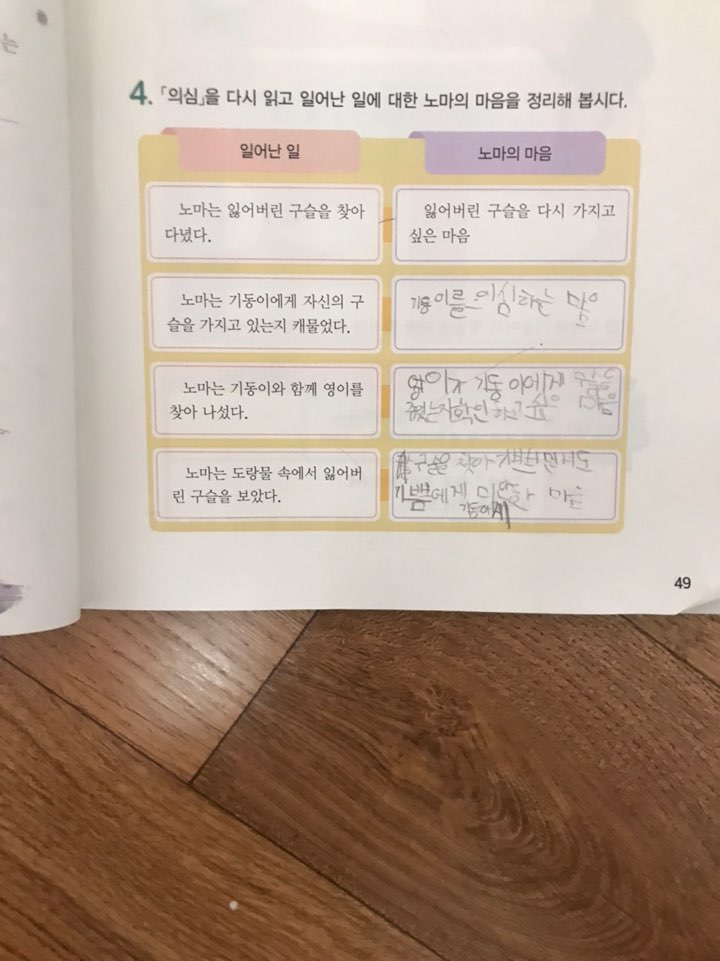 는
4. 「의심」을 다시 읽고 일어난 일에 대한 노마의 마음을 정리해 봅시다.
일어난 일
노마의 마음
노마는 잃어버린 구슬을 찾아
다녔다.
잃어버린 구슬을 다시 가지고
싶은 마음
노마는 기동이에게 자신의 구
슬을 가지고 있는지 캐물었다.
기동이를 의심하는 맘
노마는 기동이와 함께 영이를
찾아 나섰다.
영이가 기동이에게 구슬을
줬는지 확인하고 싶은 마음
노마는 도랑물 속에서 잃어버
린 구슬을 보았다.
구슬을 찾아 기쁘면서도
에게 미안한 마음
기동이
49